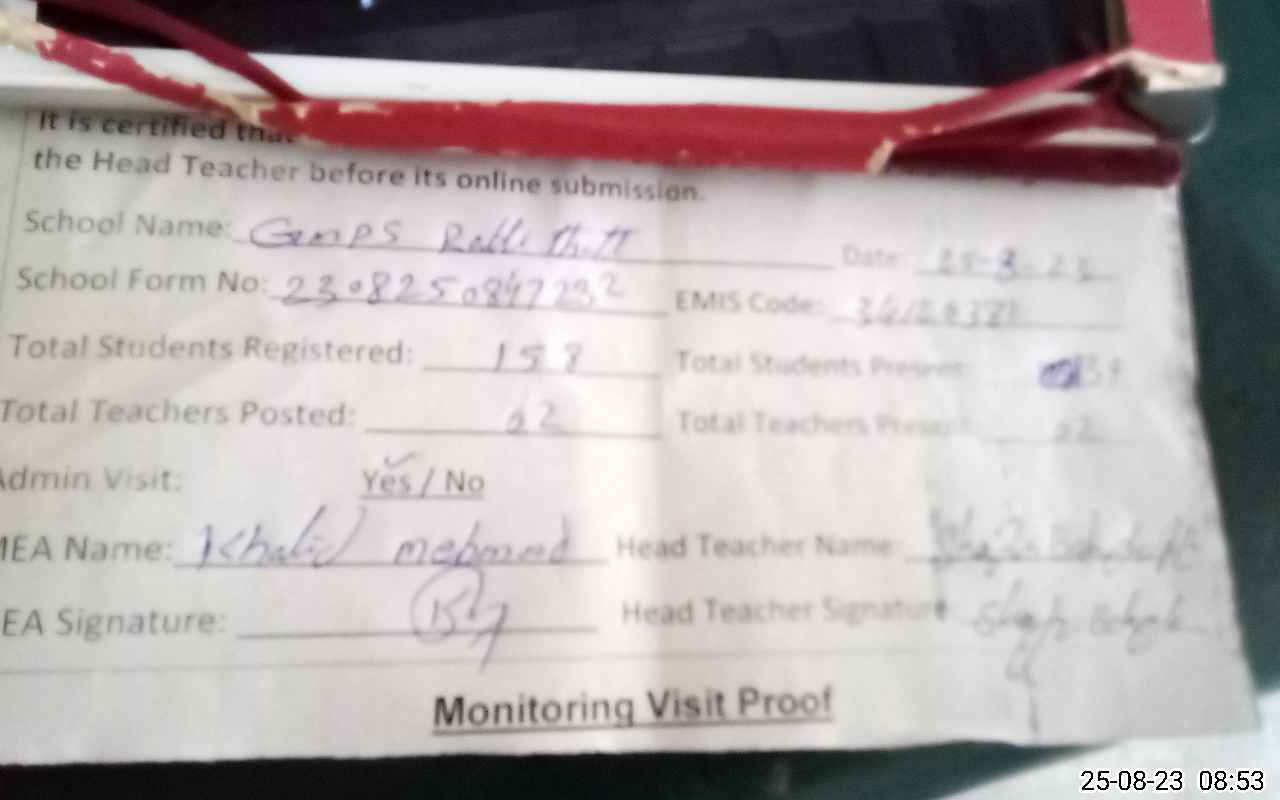 It is certified that
the Head Teacher before its online submission.
School Name: GMPS Date: 25-8-23
School Form No: 230825084723 2 EMIS Code:
Total Students Registered: 158 Total Students Present:
Total Teachers Posted: 02 Total Teachers Present: 02
Admin Visit: Yes / No
MEA Name: Khalid mehmood Head Teacher Name:
EA Signature: Head Teacher Signature
Monitoring Visit Proof
25-08-23 08:53